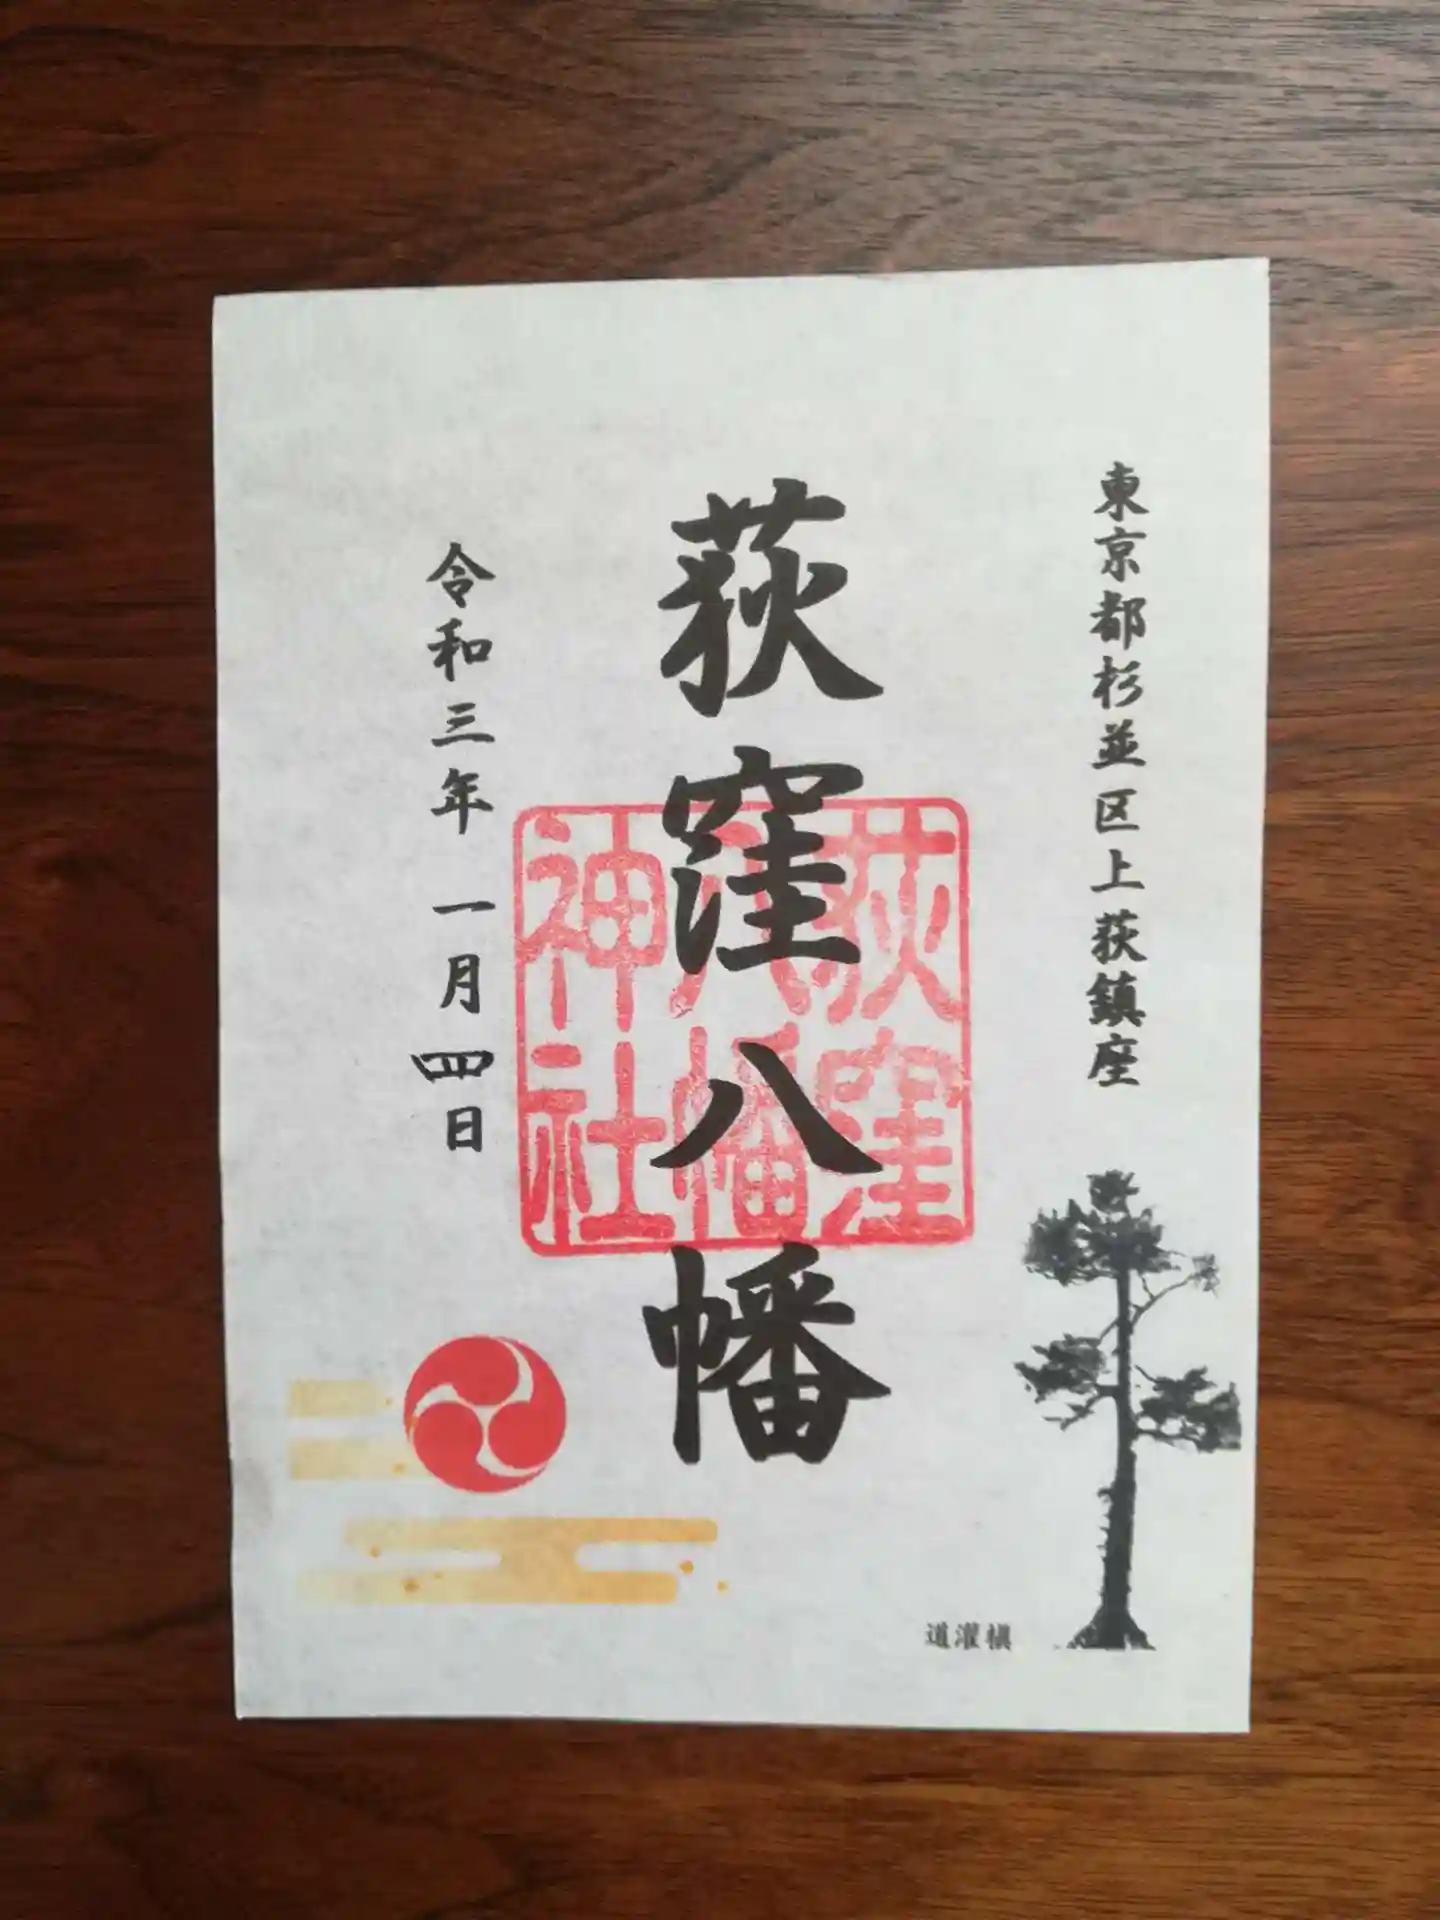 東京都杉並区上荻鎮座
荻窪八幡
荻窪
八幡
神社
令和三年 一月四日
道灌槇